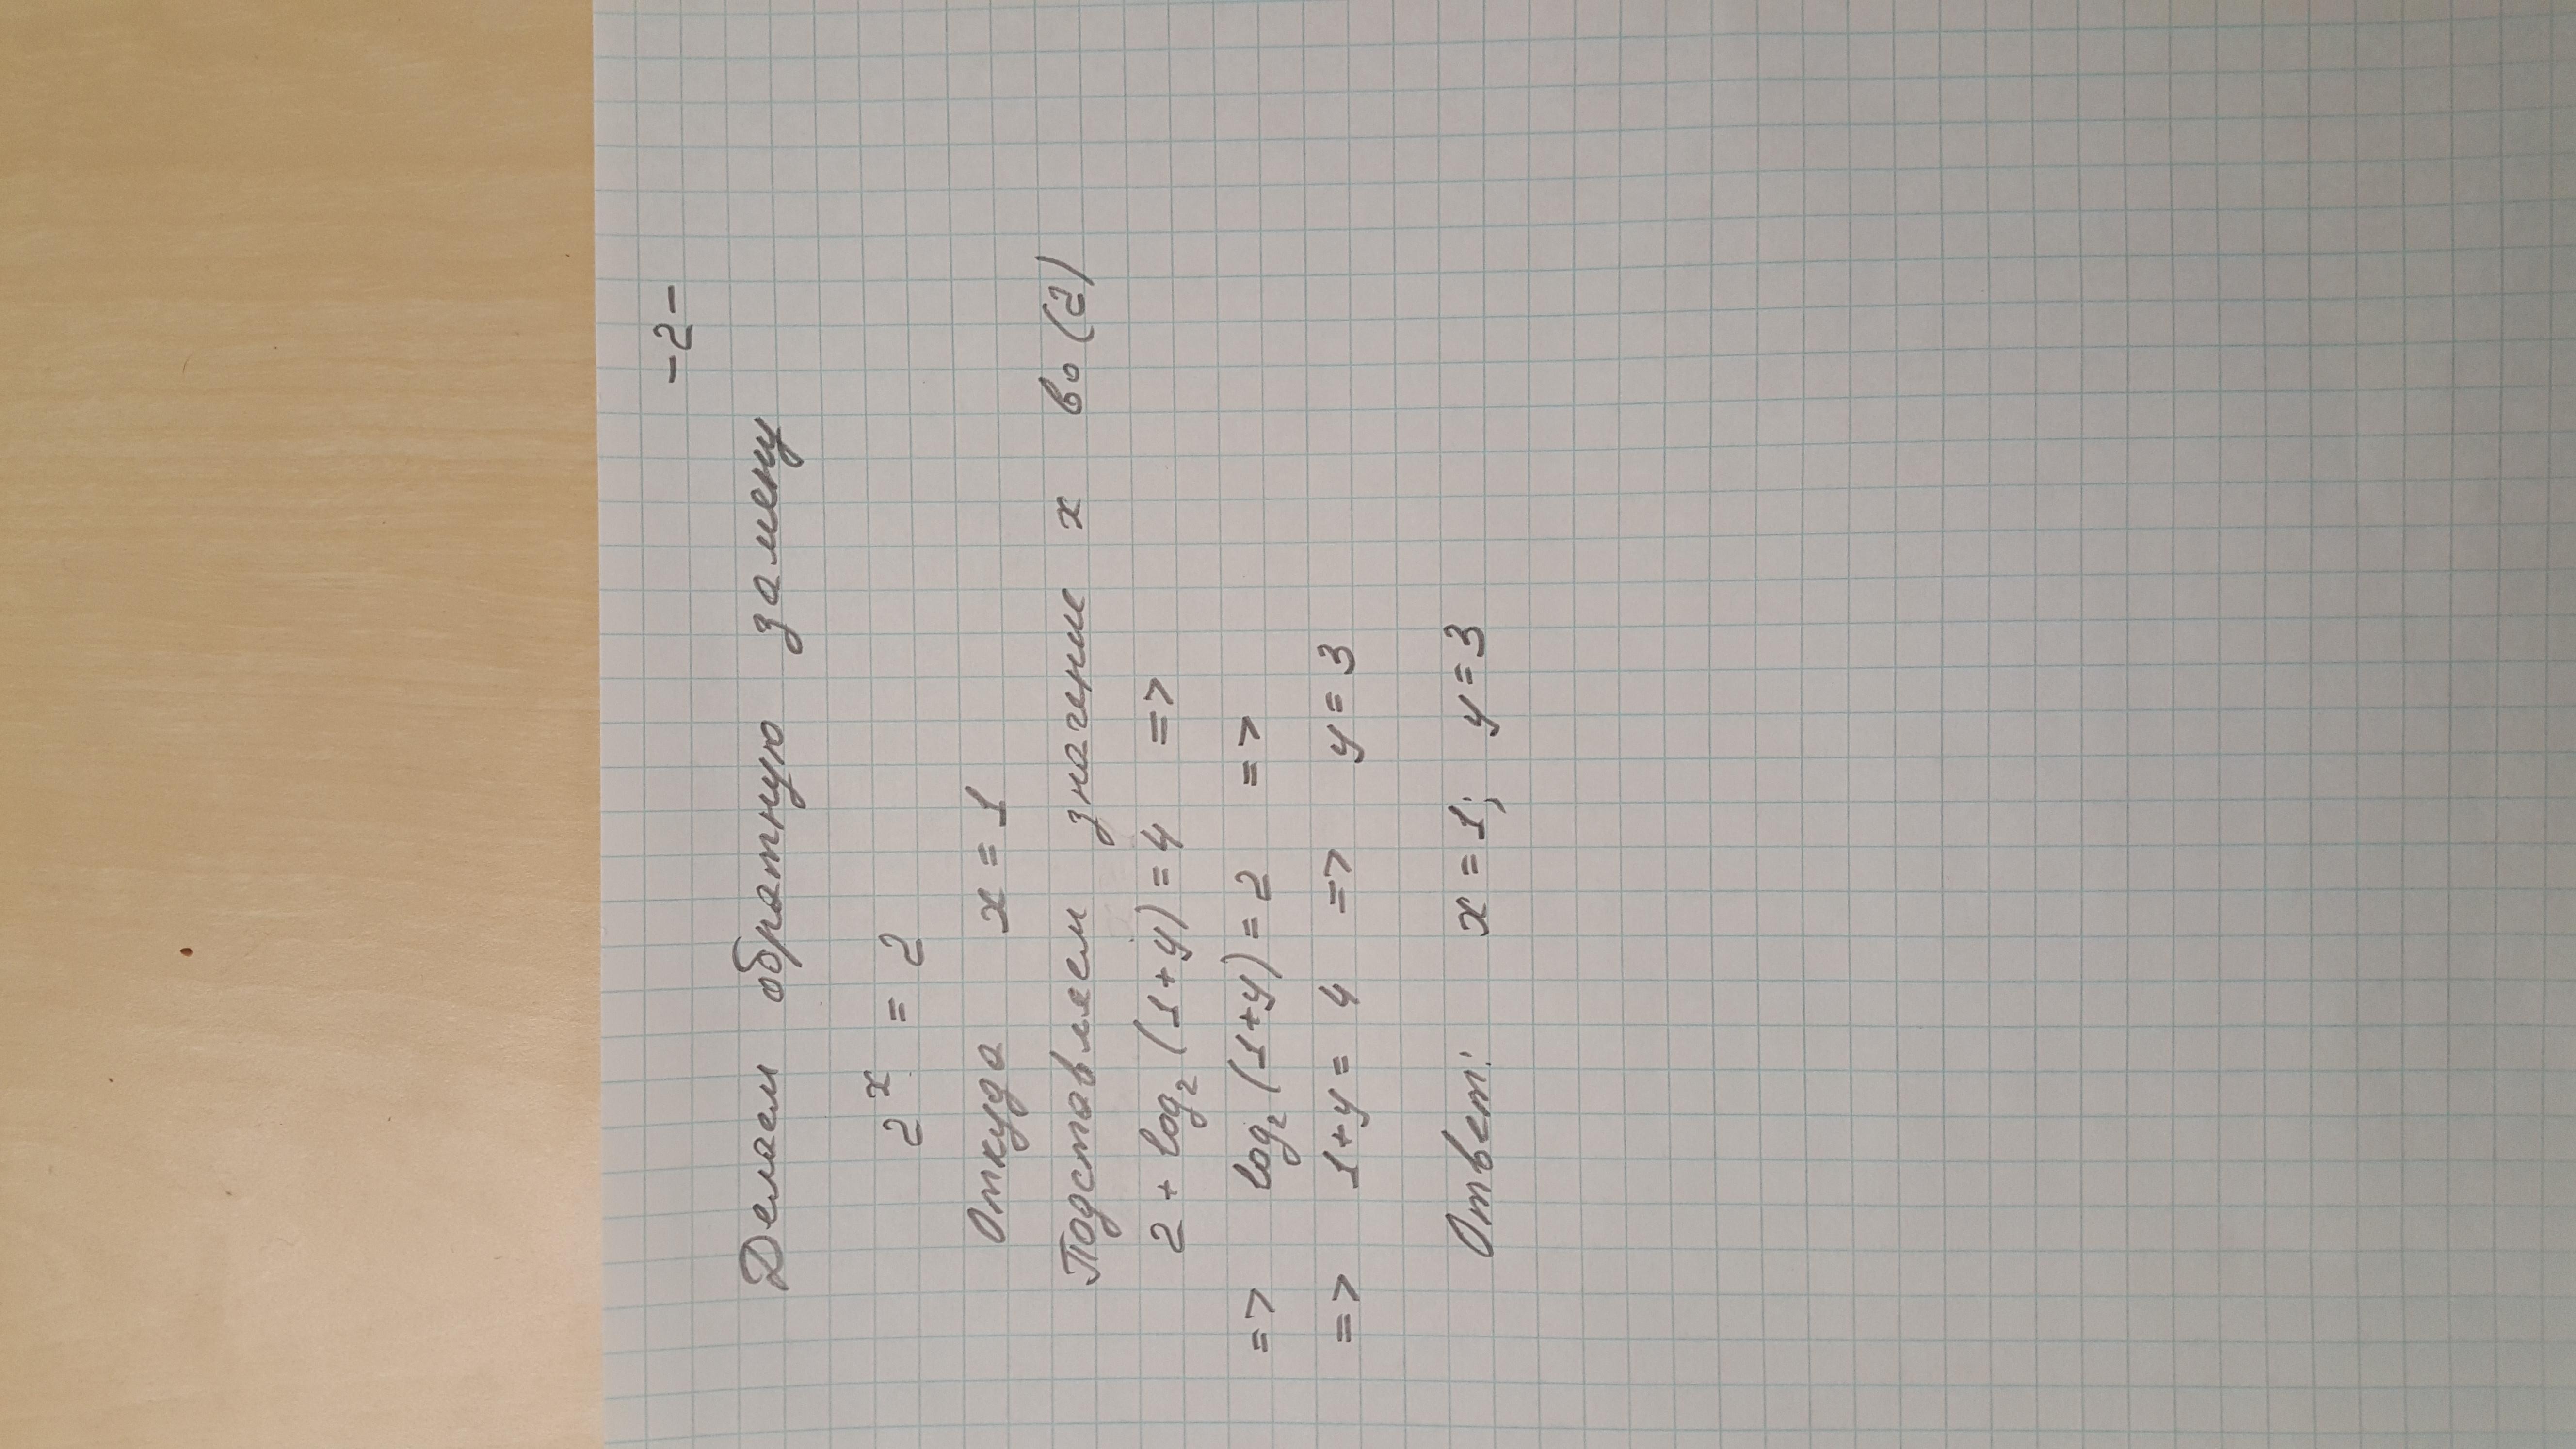 -2-
Делаем обратную замену
2ˣ = 2
Откуда x = 1
Подставляем значение x во (2)
2 + log₂ (1 + y) = 4 =>
=> log₂ (1+y) = 2 =>
=> 1+y = 4 => y = 3
Ответ: x = 1; y = 3